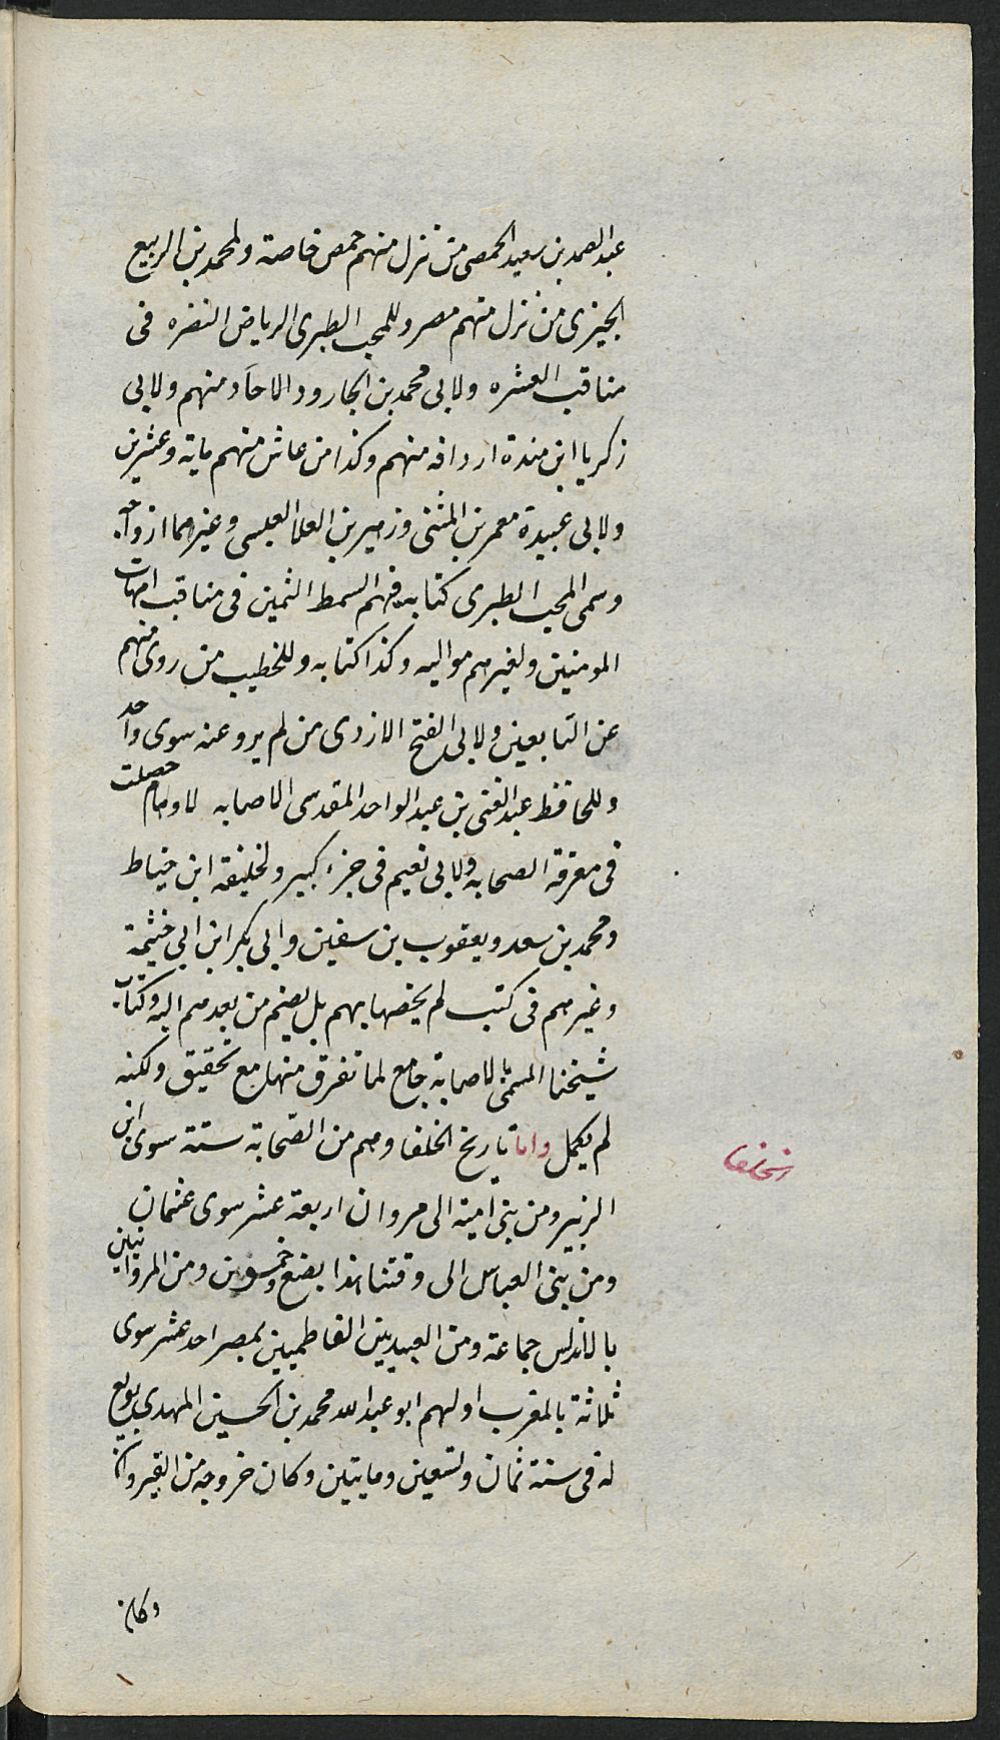 عبد الصمد بن سعيد الحمصي من نزل منهم حمص خاصة ولمحمد بن الربيع
الجيزى من نزل منهم مصر وللمحب الطبرى الرياض النضره فى
مناقب العشره ولابى محمد بن الجارود الاحآد منهم ولابى
زكريا ابن مندة اردافه منهم وكذا من عاش منهم ماية وعشرين
ولابى عبيدة معمر بن المثنى وزهير بن العلا العبسى وغيرهما ازواجه
وسمى المحب الطبرى كتابه فيهم السمط الثمين فى مناقب امهات
المومنين ولغيرهم مواليه وكذا كتابه وللخطيب من روى منهم
عن التابعين ولابى الفتح الازدى من لم يرو عنه سوى واحد
وللحافظ عبد الغنى بن عبد الواحد المقدسى الاصابه لاوهام حصلت
فى معرفة الصحابه ولابى نعيم فى جزء كبير ولخليفة ابن خياط
ومحمد بن سعد ويعقوب بن سفين وابى بكر ابن ابى خيثمة
وغيرهم فى كتب لم يخصها بهم بل يضم من بعدهم اليه وكتاب
شيخنا المسمى بالاصابة جامع لما تفرق منها مع تحقيق ولكنه
لم يكمل واما تاريخ الخلفا وهم من الصحابة ستة سوى ابن
الزبير ومن بنى امية الى مروان اربعة عشر سوى عثمان
ومن بنى العباس الى وقتنا هذا بضع وخمسون ومن المروانيين
بالاندلس جماعة ومن العبيديين الفاطميين بمصر احد عشر سوى
ثلاثة بالمغرب اولهم ابو عبد الله محمد بن الحسين المهدى بويع
له فى سنة ثمان وتسعين ومايتين وكان خروجه من القيروان
الخلفا
وكان